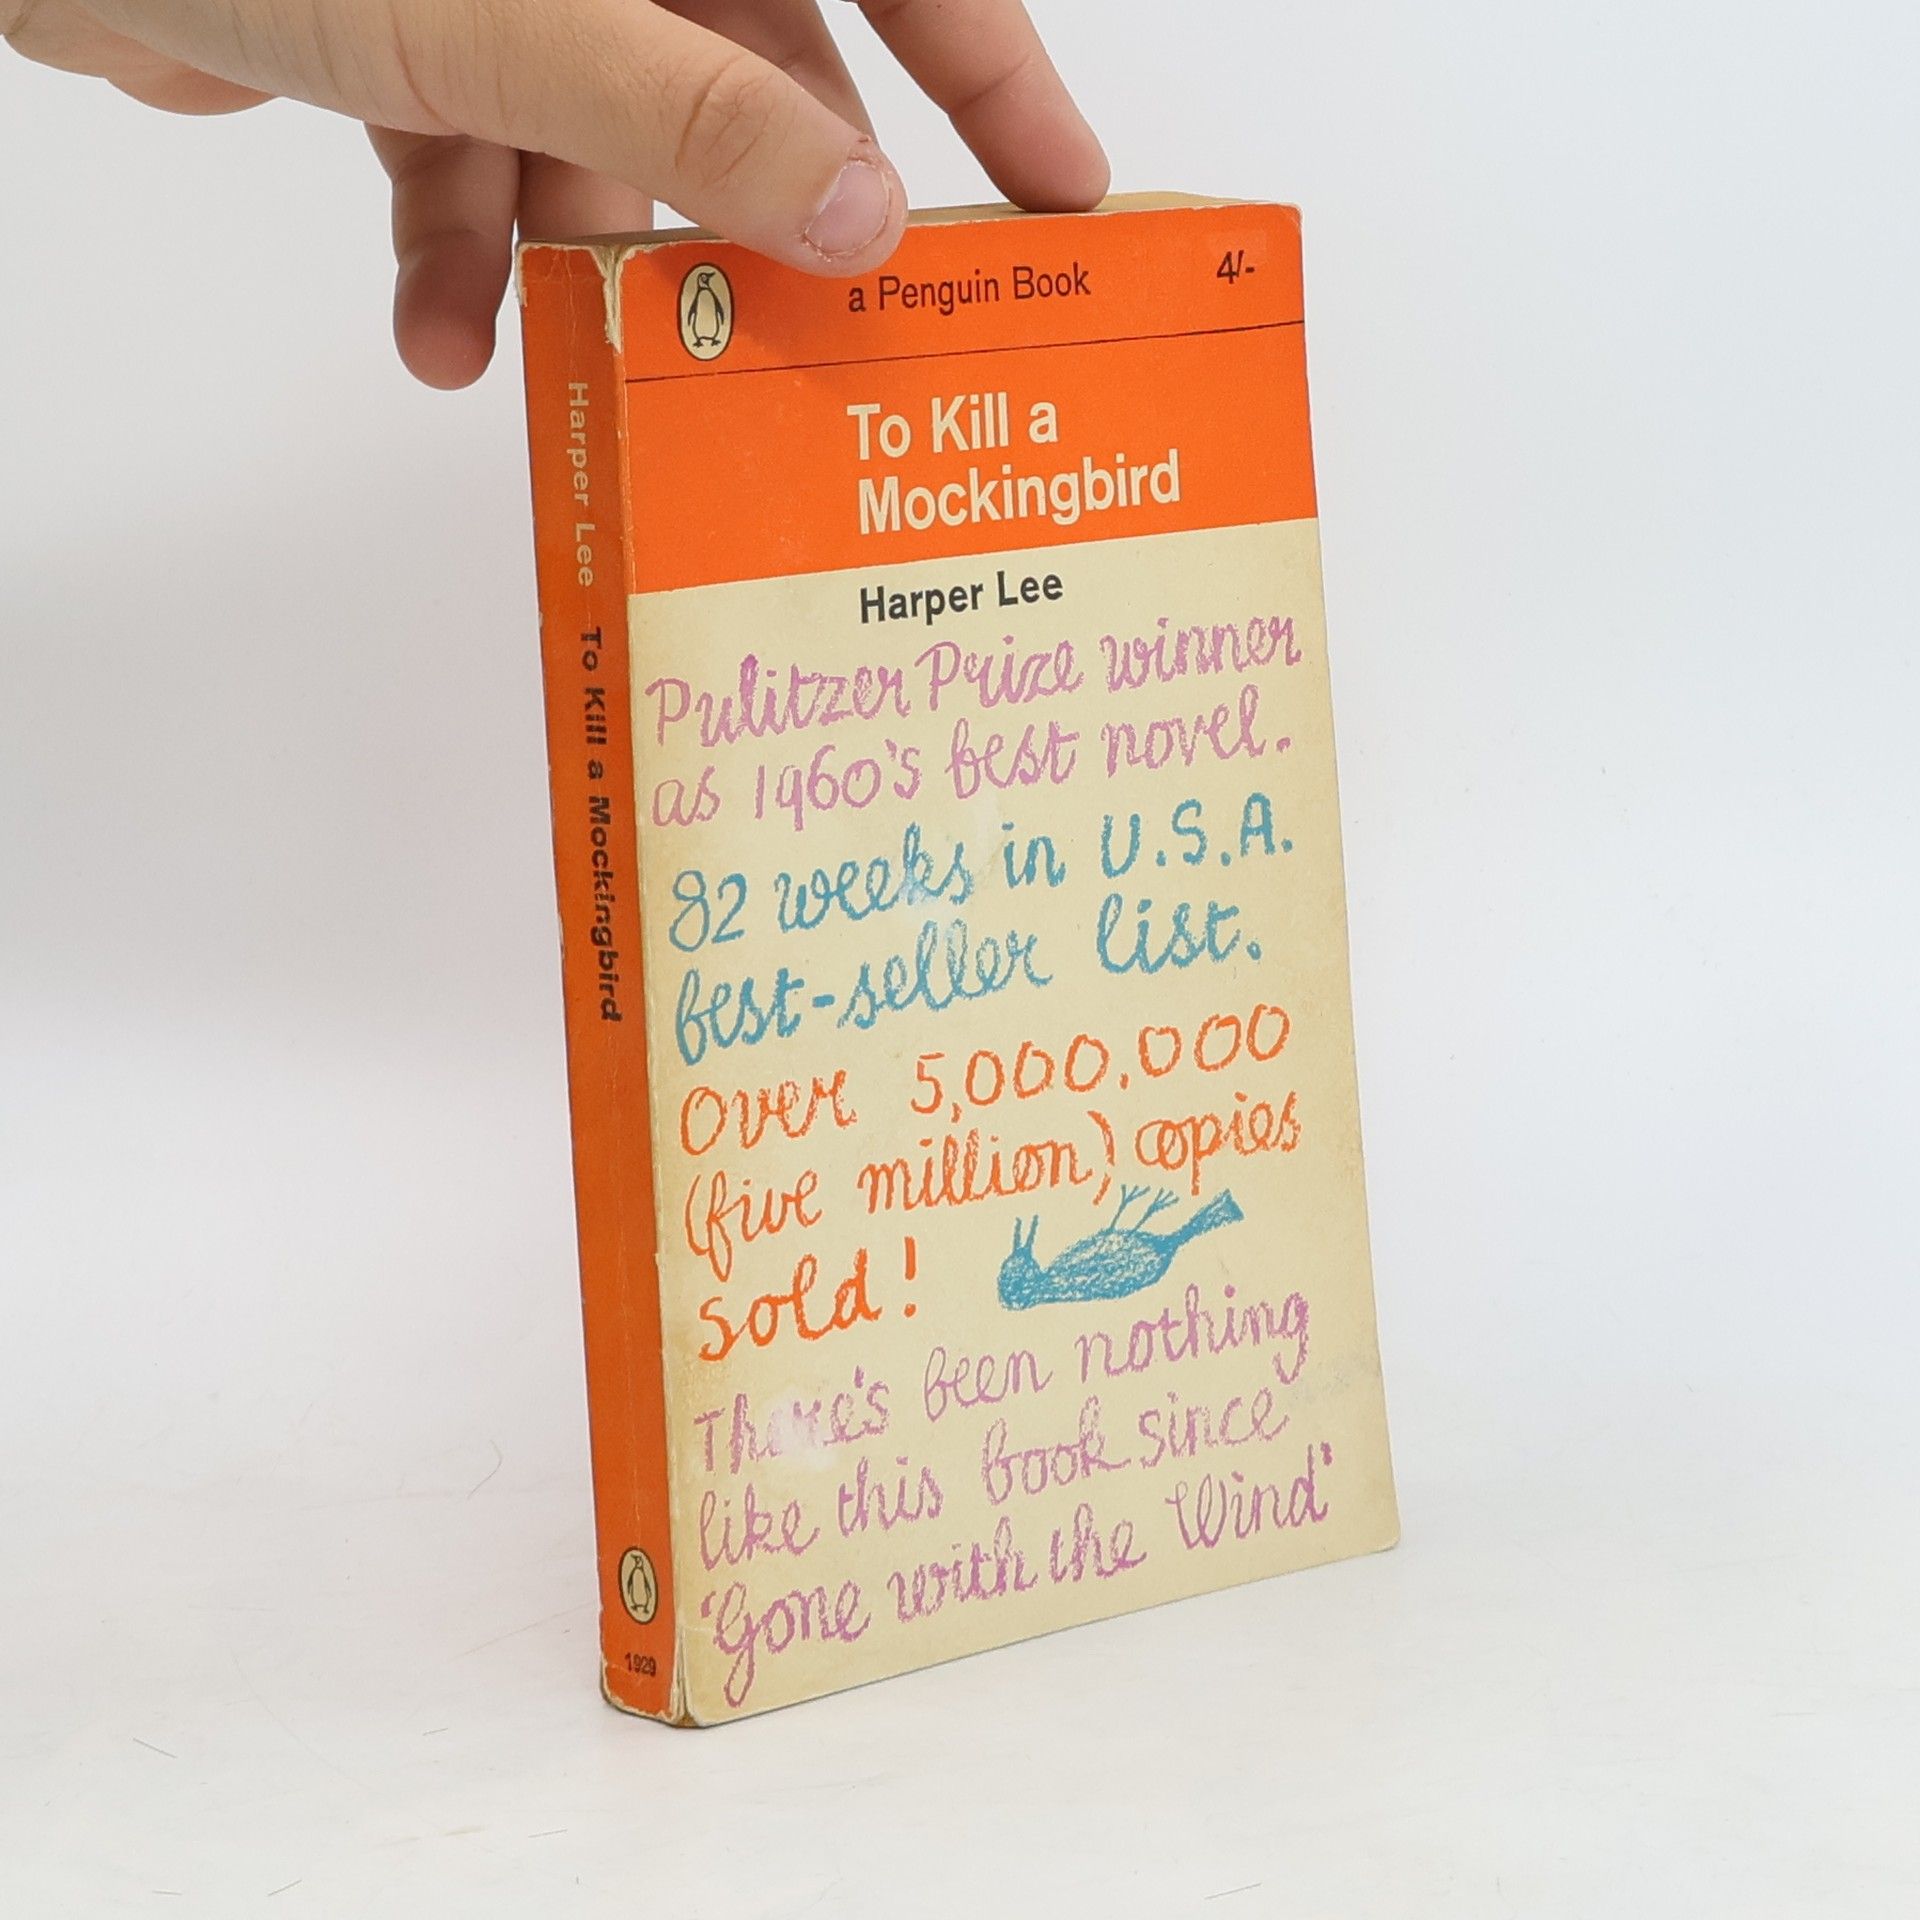 a Penguin Book
4/-
To Kill a
Mockingbird
Harper Lee
Pulitzer Prize winner
as 1960's best novel.
82 weeks in U.S.A.
best-seller list.
Over 5,000,000
(five million) copies
sold!
There's been nothing
like this book since
'Gone with the Wind'
Harper Lee To Kill a Mockingbird
1929